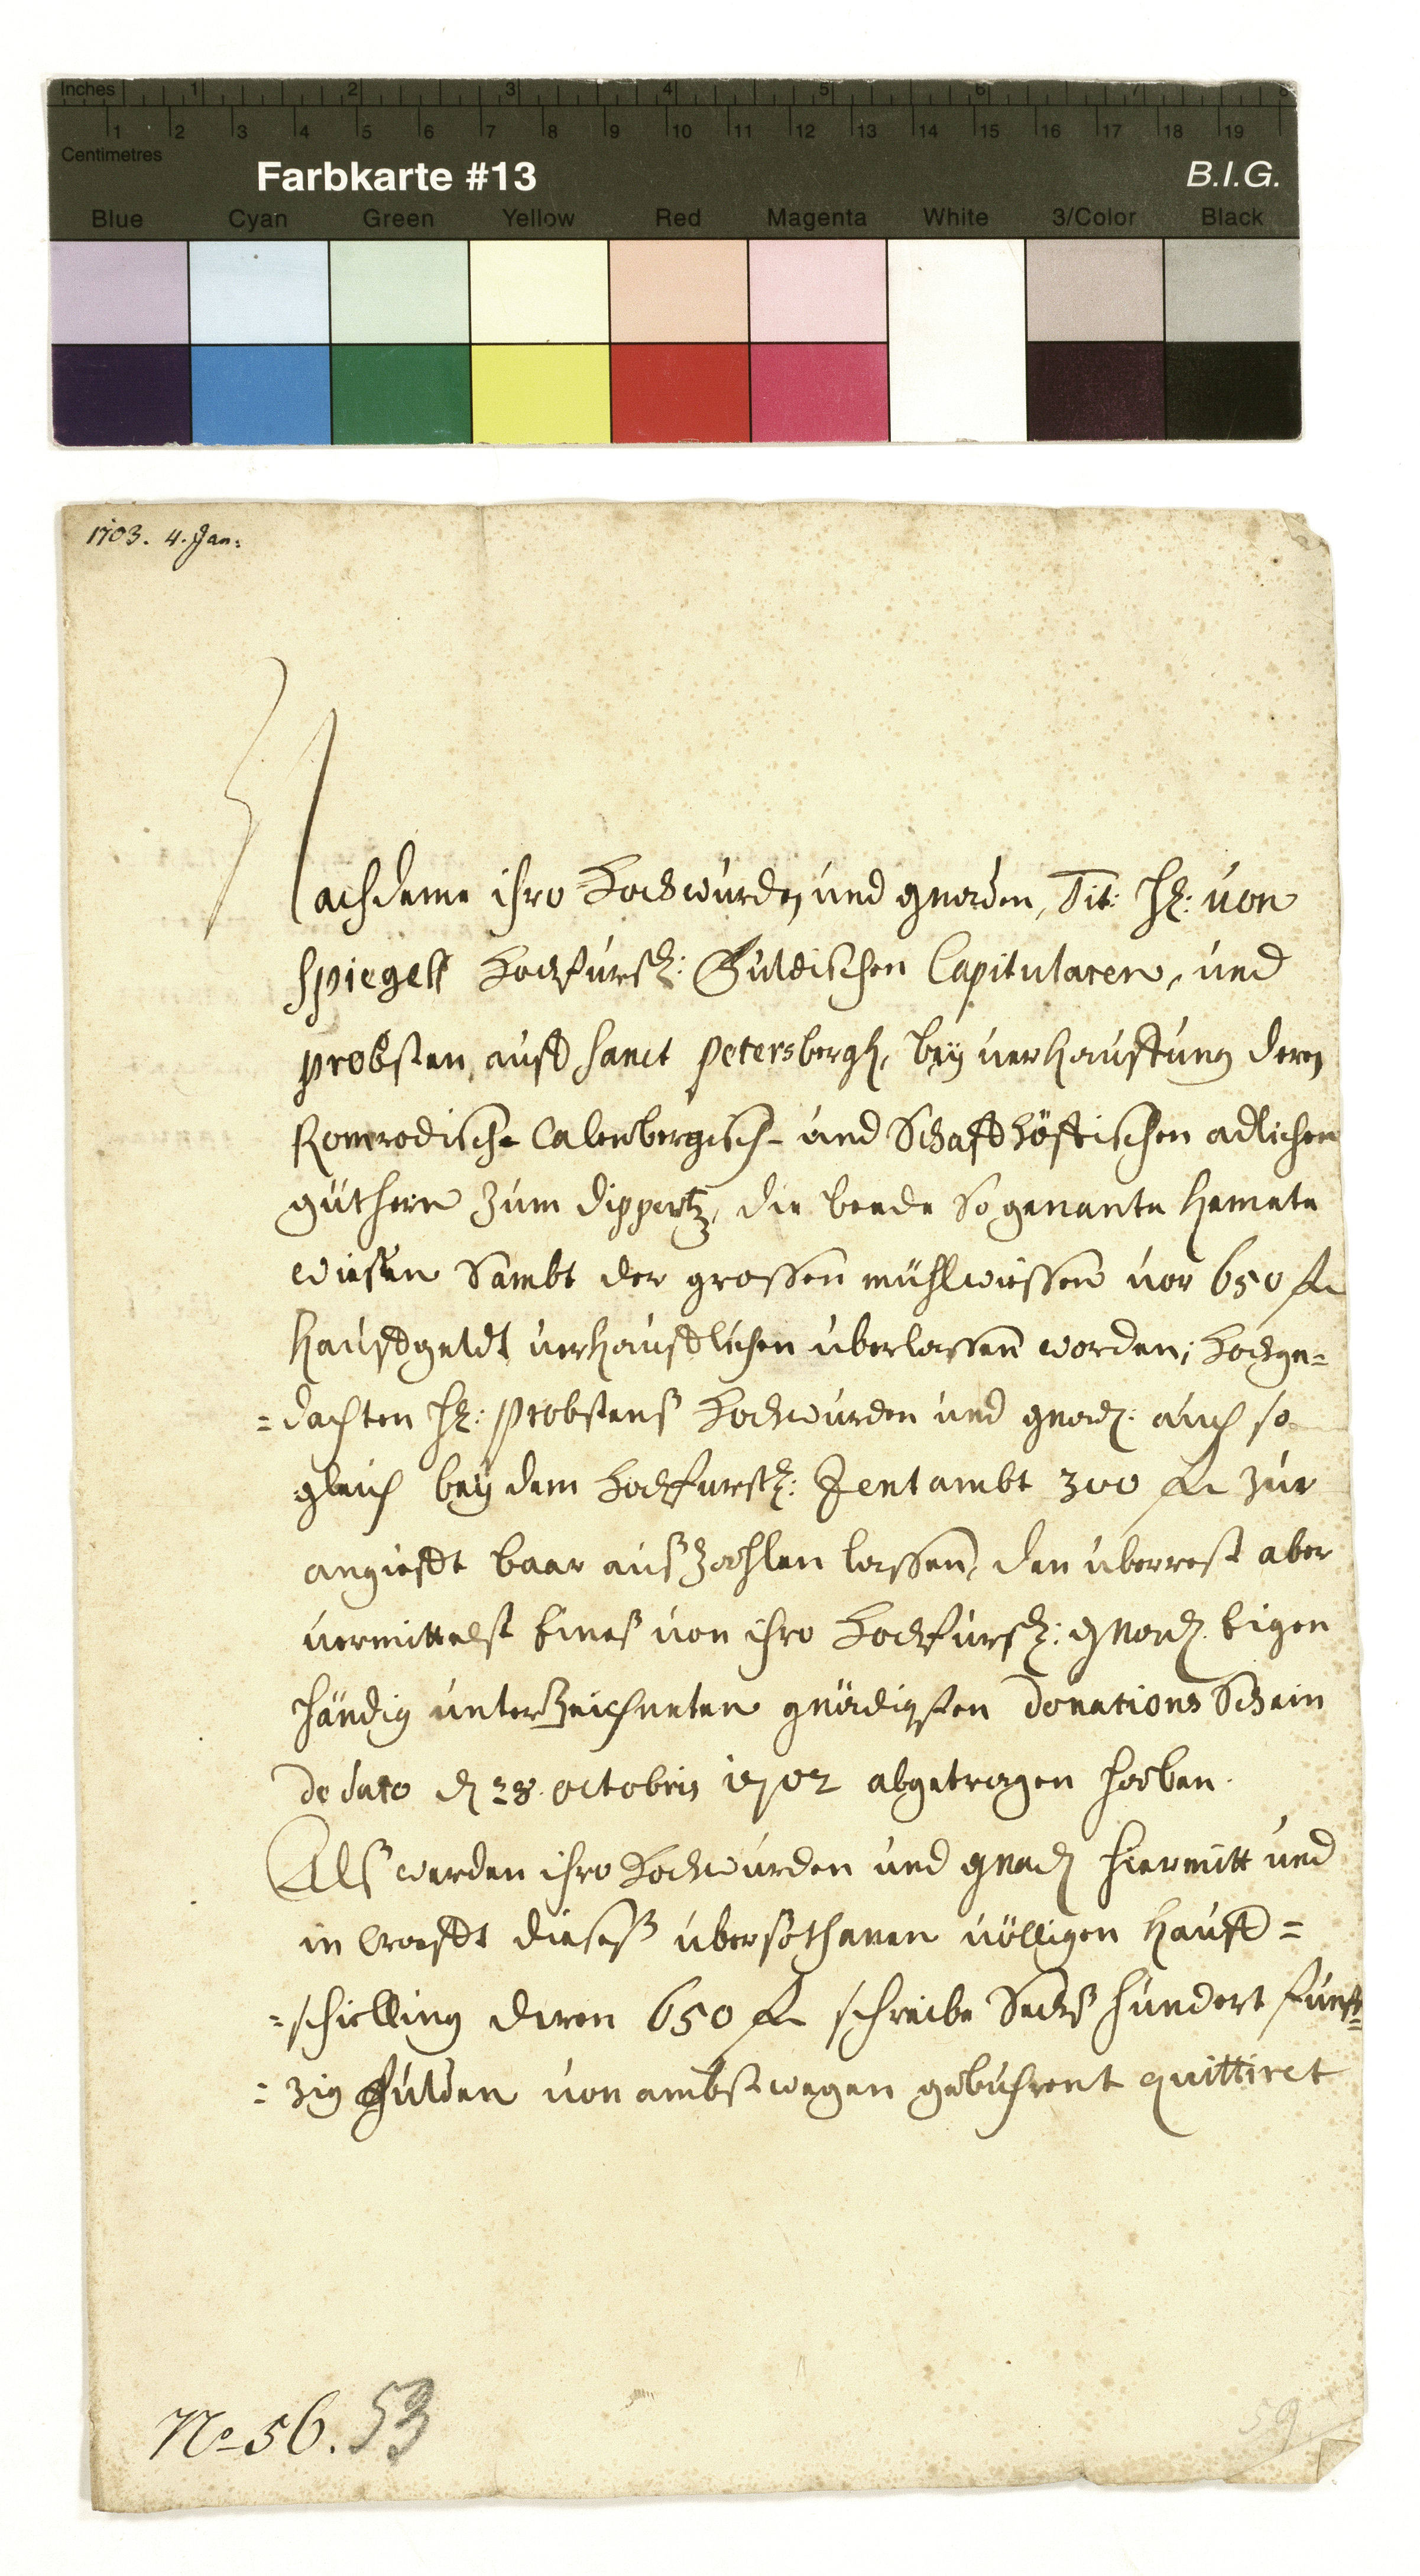 Inches 1 2 3 4 5 6 7 8
1 2 3 4 5 6 7 8 9 10 11 12 13 14 15 16 17 18 19
Centimetres
Farbkarte #13 B.I.G.
Blue Cyan Green Yellow Red Magenta White 3/Color Black
1703. 4. Jan:
Nachdeme ihro Hochwürden und gnaden, Tit: H: von
Spiegell Hochfürstl: Fuldischen Capitularen, und
probsten auff Sanct Petersbergh, bey verkauffung deren
Romrodische Calenbergisch- und Schaffthöffischen adlichen
güthern zum Dippertz, die beede so genante
wiesen Sambt der grossen mühlwiessen vor 650 fl
kauffgeldt verkäufflichen überlassen worden; Hochge=
=dachten H: Probstens Hochwürden und gnad: auch so
gleich bey dem Hochfürstl: Zentambt 300 fl zur
angiefft baar auß zahlen lassen, den überrest aber
vermittelst Eines von ihro Hochfürstl: gnad: Eigen
händig unterzeichneten gnädigsten donations Schein
de dato d 28. octobris 1702 abgetragen haben.
Alß werden ihro Hochwürden und gnad hiermitt und
in Crafft dieseß über sothanen völligen Kauff=
=schielling deren 650 fl schreibe Sechß hundert funff=
=zig Gulden von ambtswegen gebührent quittiret
No 56. 53
59